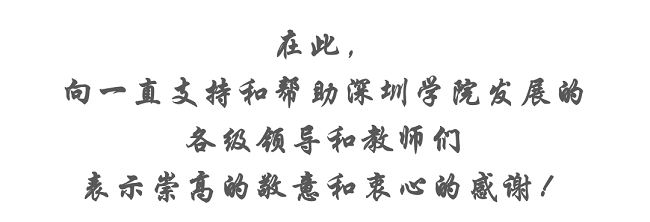 在此，
向一直支持和帮助深圳学院发展的
各级领导和教师们
表示崇高的敬意和衷心的感谢！